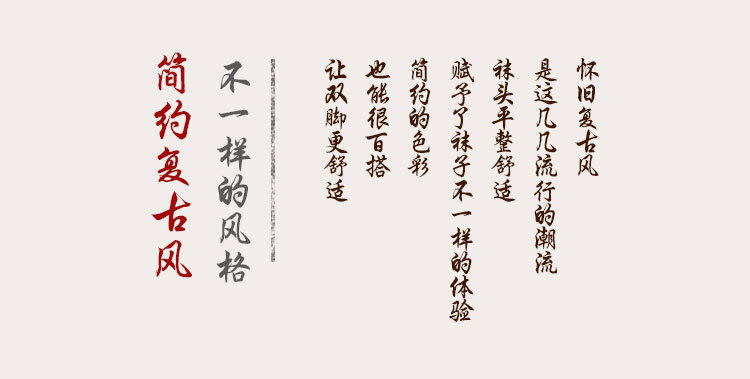 怀旧复古风
是这几几流行的潮流
袜头平整舒适
赋予了袜子不一样的体验
简约的色彩
也能很百搭
让双脚更舒适
不一样的风格
简约复古风